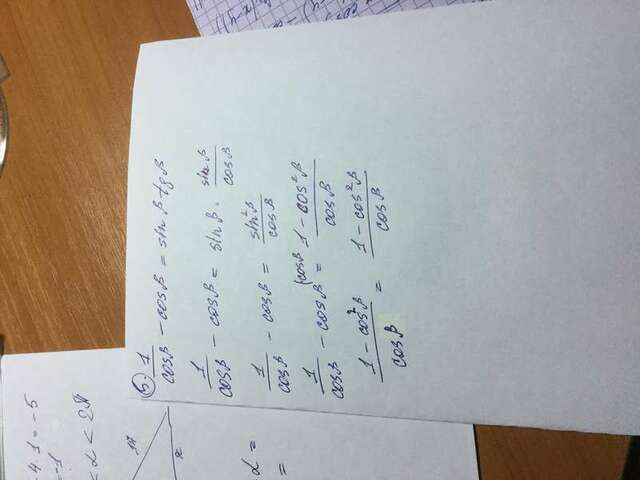 - 4 . 1 = - 5
= -1
< α < 2π
α =
=
5. 1/cosβ - cosβ = sin β · tg β
1/cosβ - cosβ = sin β · sin β/cosβ
1/cosβ - cosβ = sin²β/cosβ
1/cosβ - cosβ (cosβ = 1 - cos²β/cosβ
1 - cos²β/cosβ = 1 - cos²β/cosβ